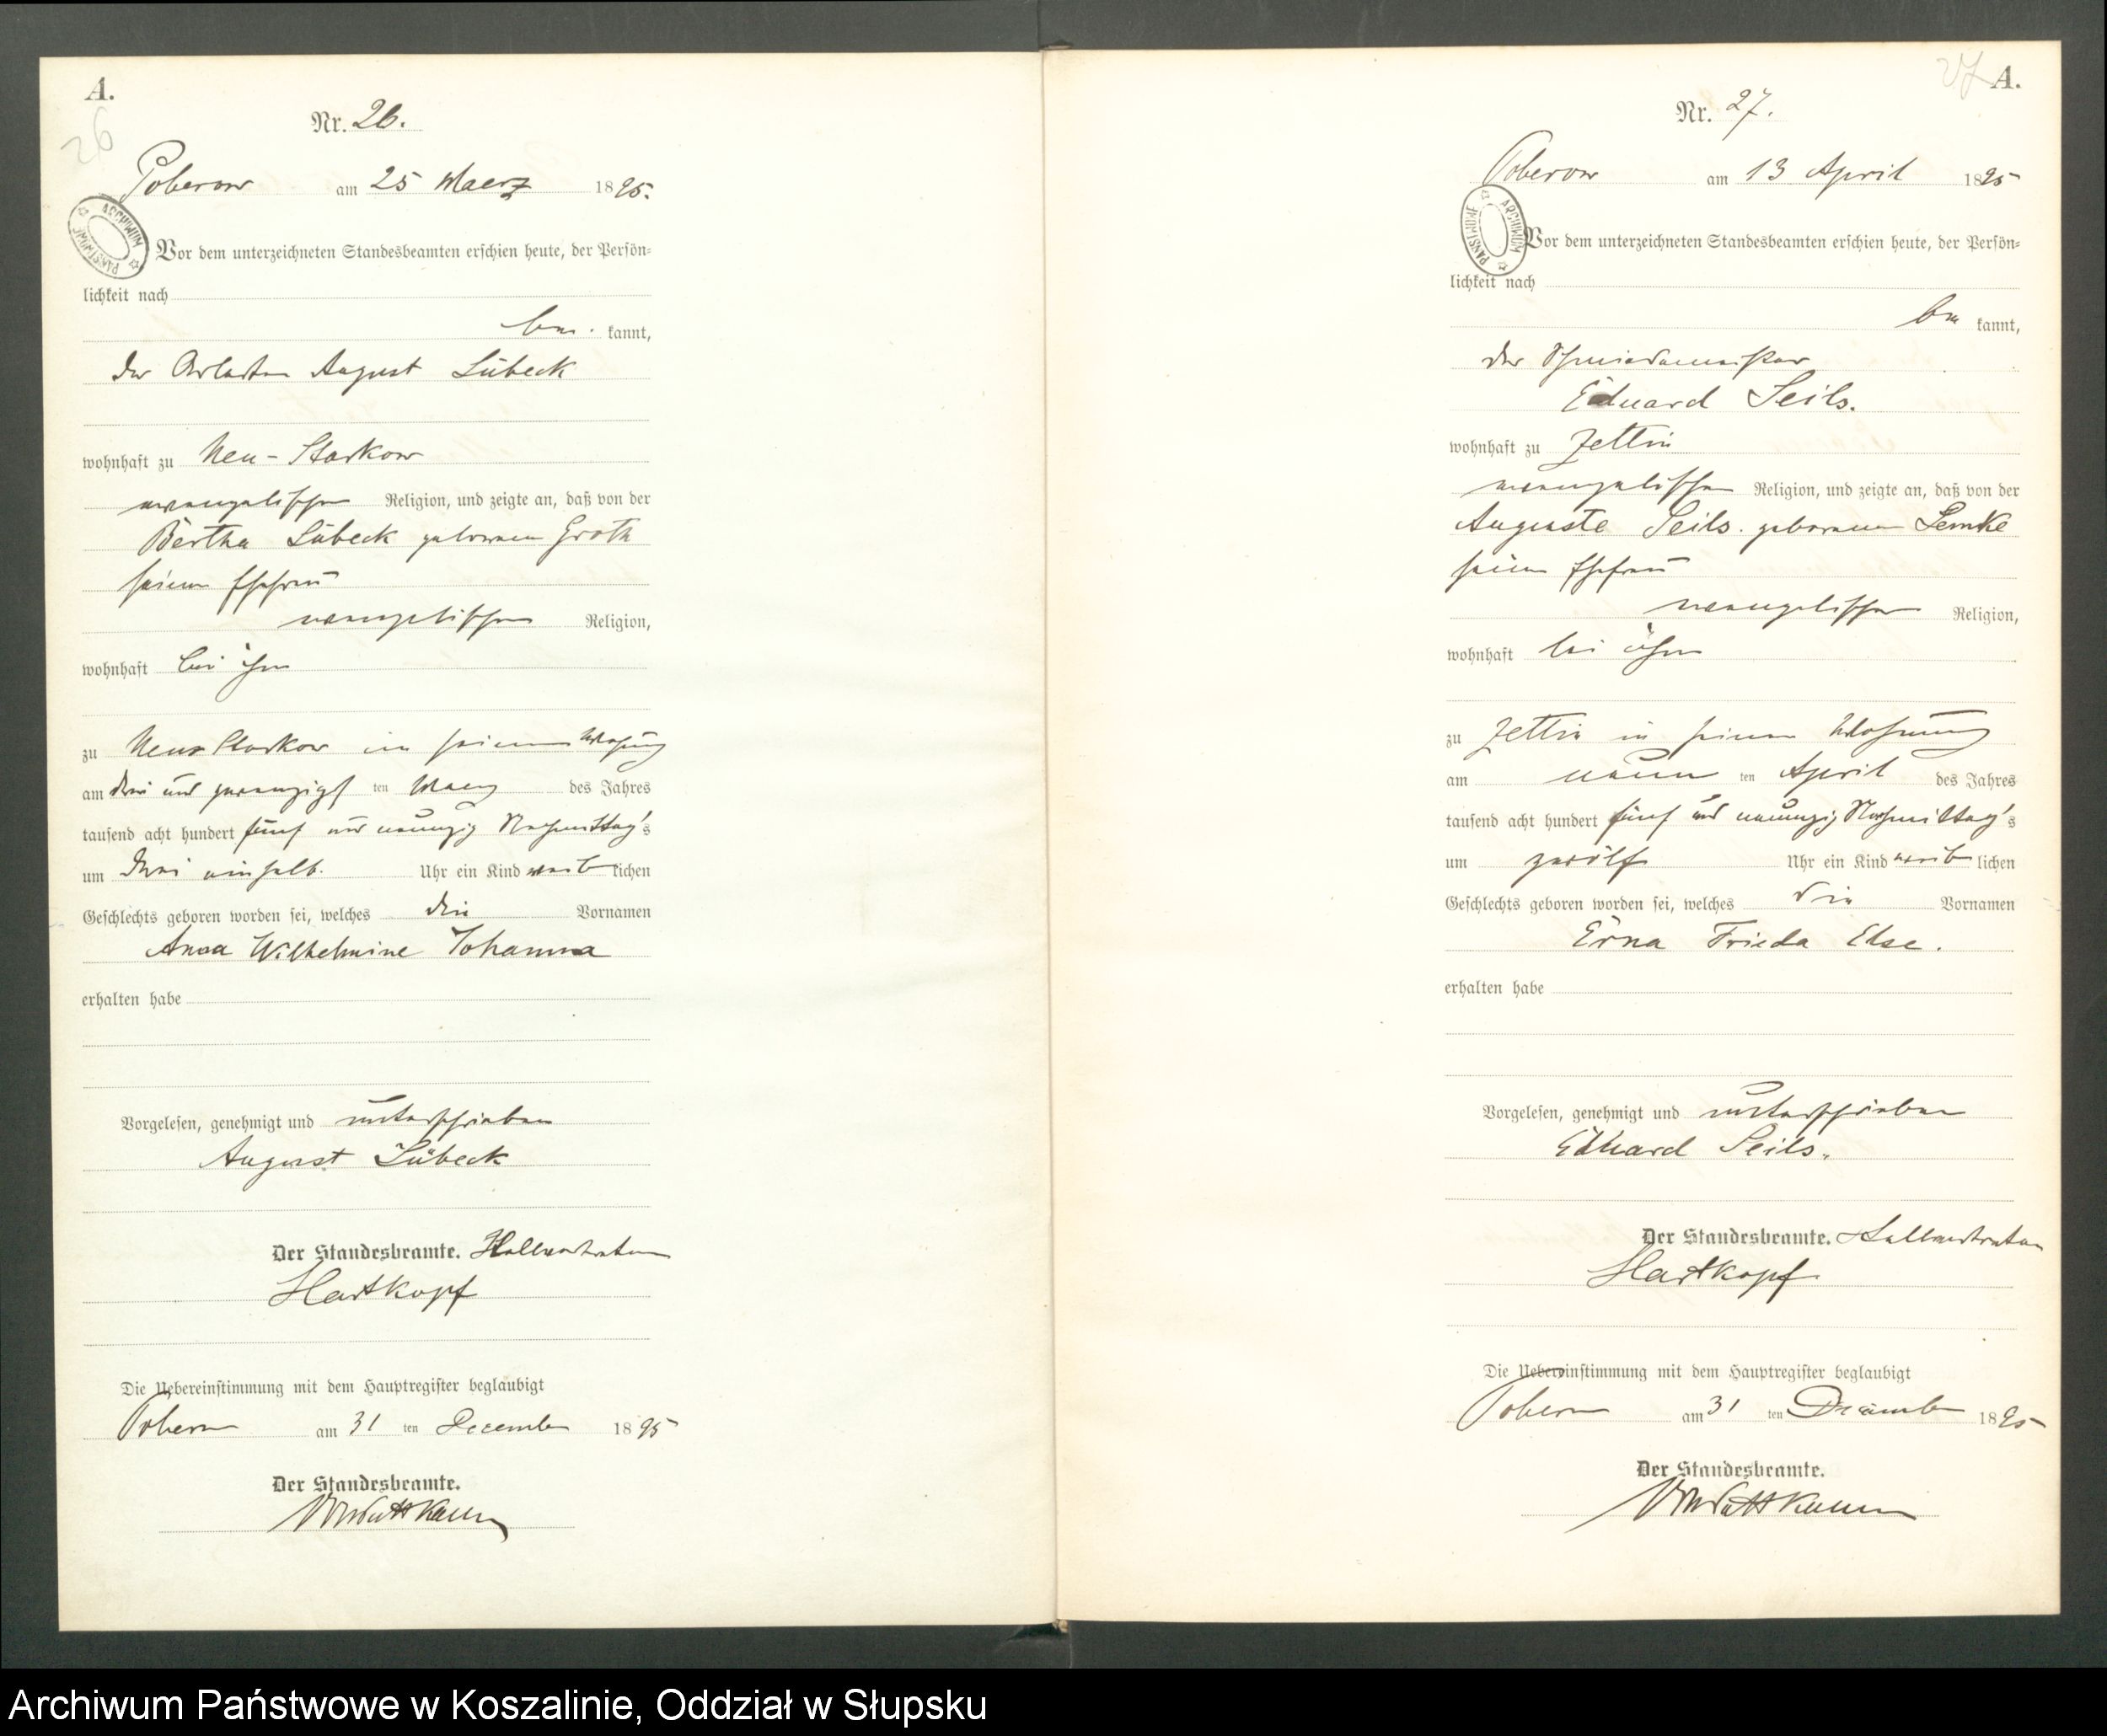 A.
26
Nr. 26.
Poberow am 25 Maerz 1895.
ARCHIWUM PAŃSTWOWE
Vor dem unterzeichneten Standesbeamten erschien heute, der Persön-
lichkeit nach
be kannt,
der Arbeiter August Lübeck
wohnhaft zu Neu-Starkow
evangelischer Religion, und zeigte an, daß von der
Bertha Lübeck geborenen Groth
seiner Ehefrau
evangelischer Religion,
wohnhaft bei ihm
zu Neu Starkow in seiner Wohnung
am drei und zwanzigs ten Maerz des Jahres
tausend acht hundert fünf und neunzig Nachmittag's
um drei einhalb Uhr ein Kind weib lichen
Geschlechts geboren worden sei, welches die Vornamen
Anna Wilhelmine Johanna
erhalten habe
Vorgelesen, genehmigt und unterschrieben
August Lübeck
Der Standesbeamte. In Vertretung
Hartkopf
Die Uebereinstimmung mit dem Hauptregister beglaubigt
Poberow am 31 ten December 1895
Der Standesbeamte.
27 A.
Nr. 27.
Poberow am 13 April 1895
ARCHIWUM PAŃSTWOWE
Vor dem unterzeichneten Standesbeamten erschien heute, der Persön-
lichkeit nach
be kannt,
der Schmiedemeister
Eduard Seils.
wohnhaft zu Zettin
evangelischer Religion, und zeigte an, daß von der
Auguste Seils geborenen Lemke
seiner Ehefrau
evangelischer Religion,
wohnhaft bei ihm
zu Zettin in seiner Wohnung
am neun ten April des Jahres
tausend acht hundert fünf und neunzig Nachmittag's
um zwölf Uhr ein Kind weib lichen
Geschlechts geboren worden sei, welches die Vornamen
Erna Frieda Else.
erhalten habe
Vorgelesen, genehmigt und unterschrieben
Eduard Seils.
Der Standesbeamte.
Hartkopf
Die Uebereinstimmung mit dem Hauptregister beglaubigt
Poberow am 31 ten December 1895
Der Standesbeamte.
Archiwum Państwowe w Koszalinie, Oddział w Słupsku